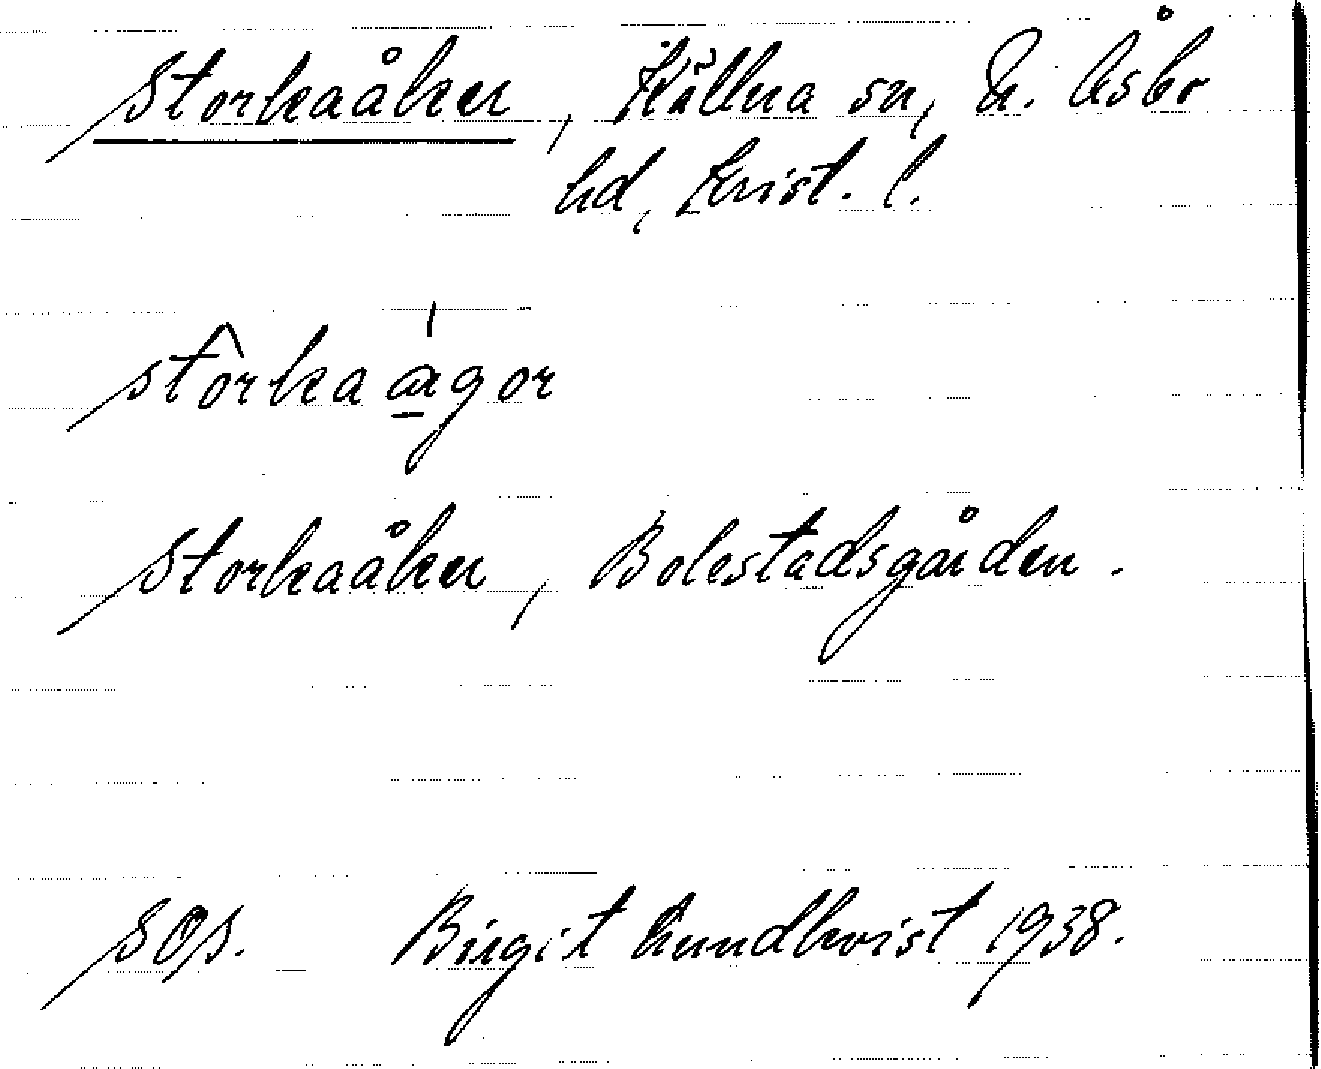 Storkaåker, Källna sn, N. Åsbo
hd, Krist. l.
stôrkaa̱gor
Storkaåker, Bolestadsgården.
sos. Birgit Lundkvist 1938.